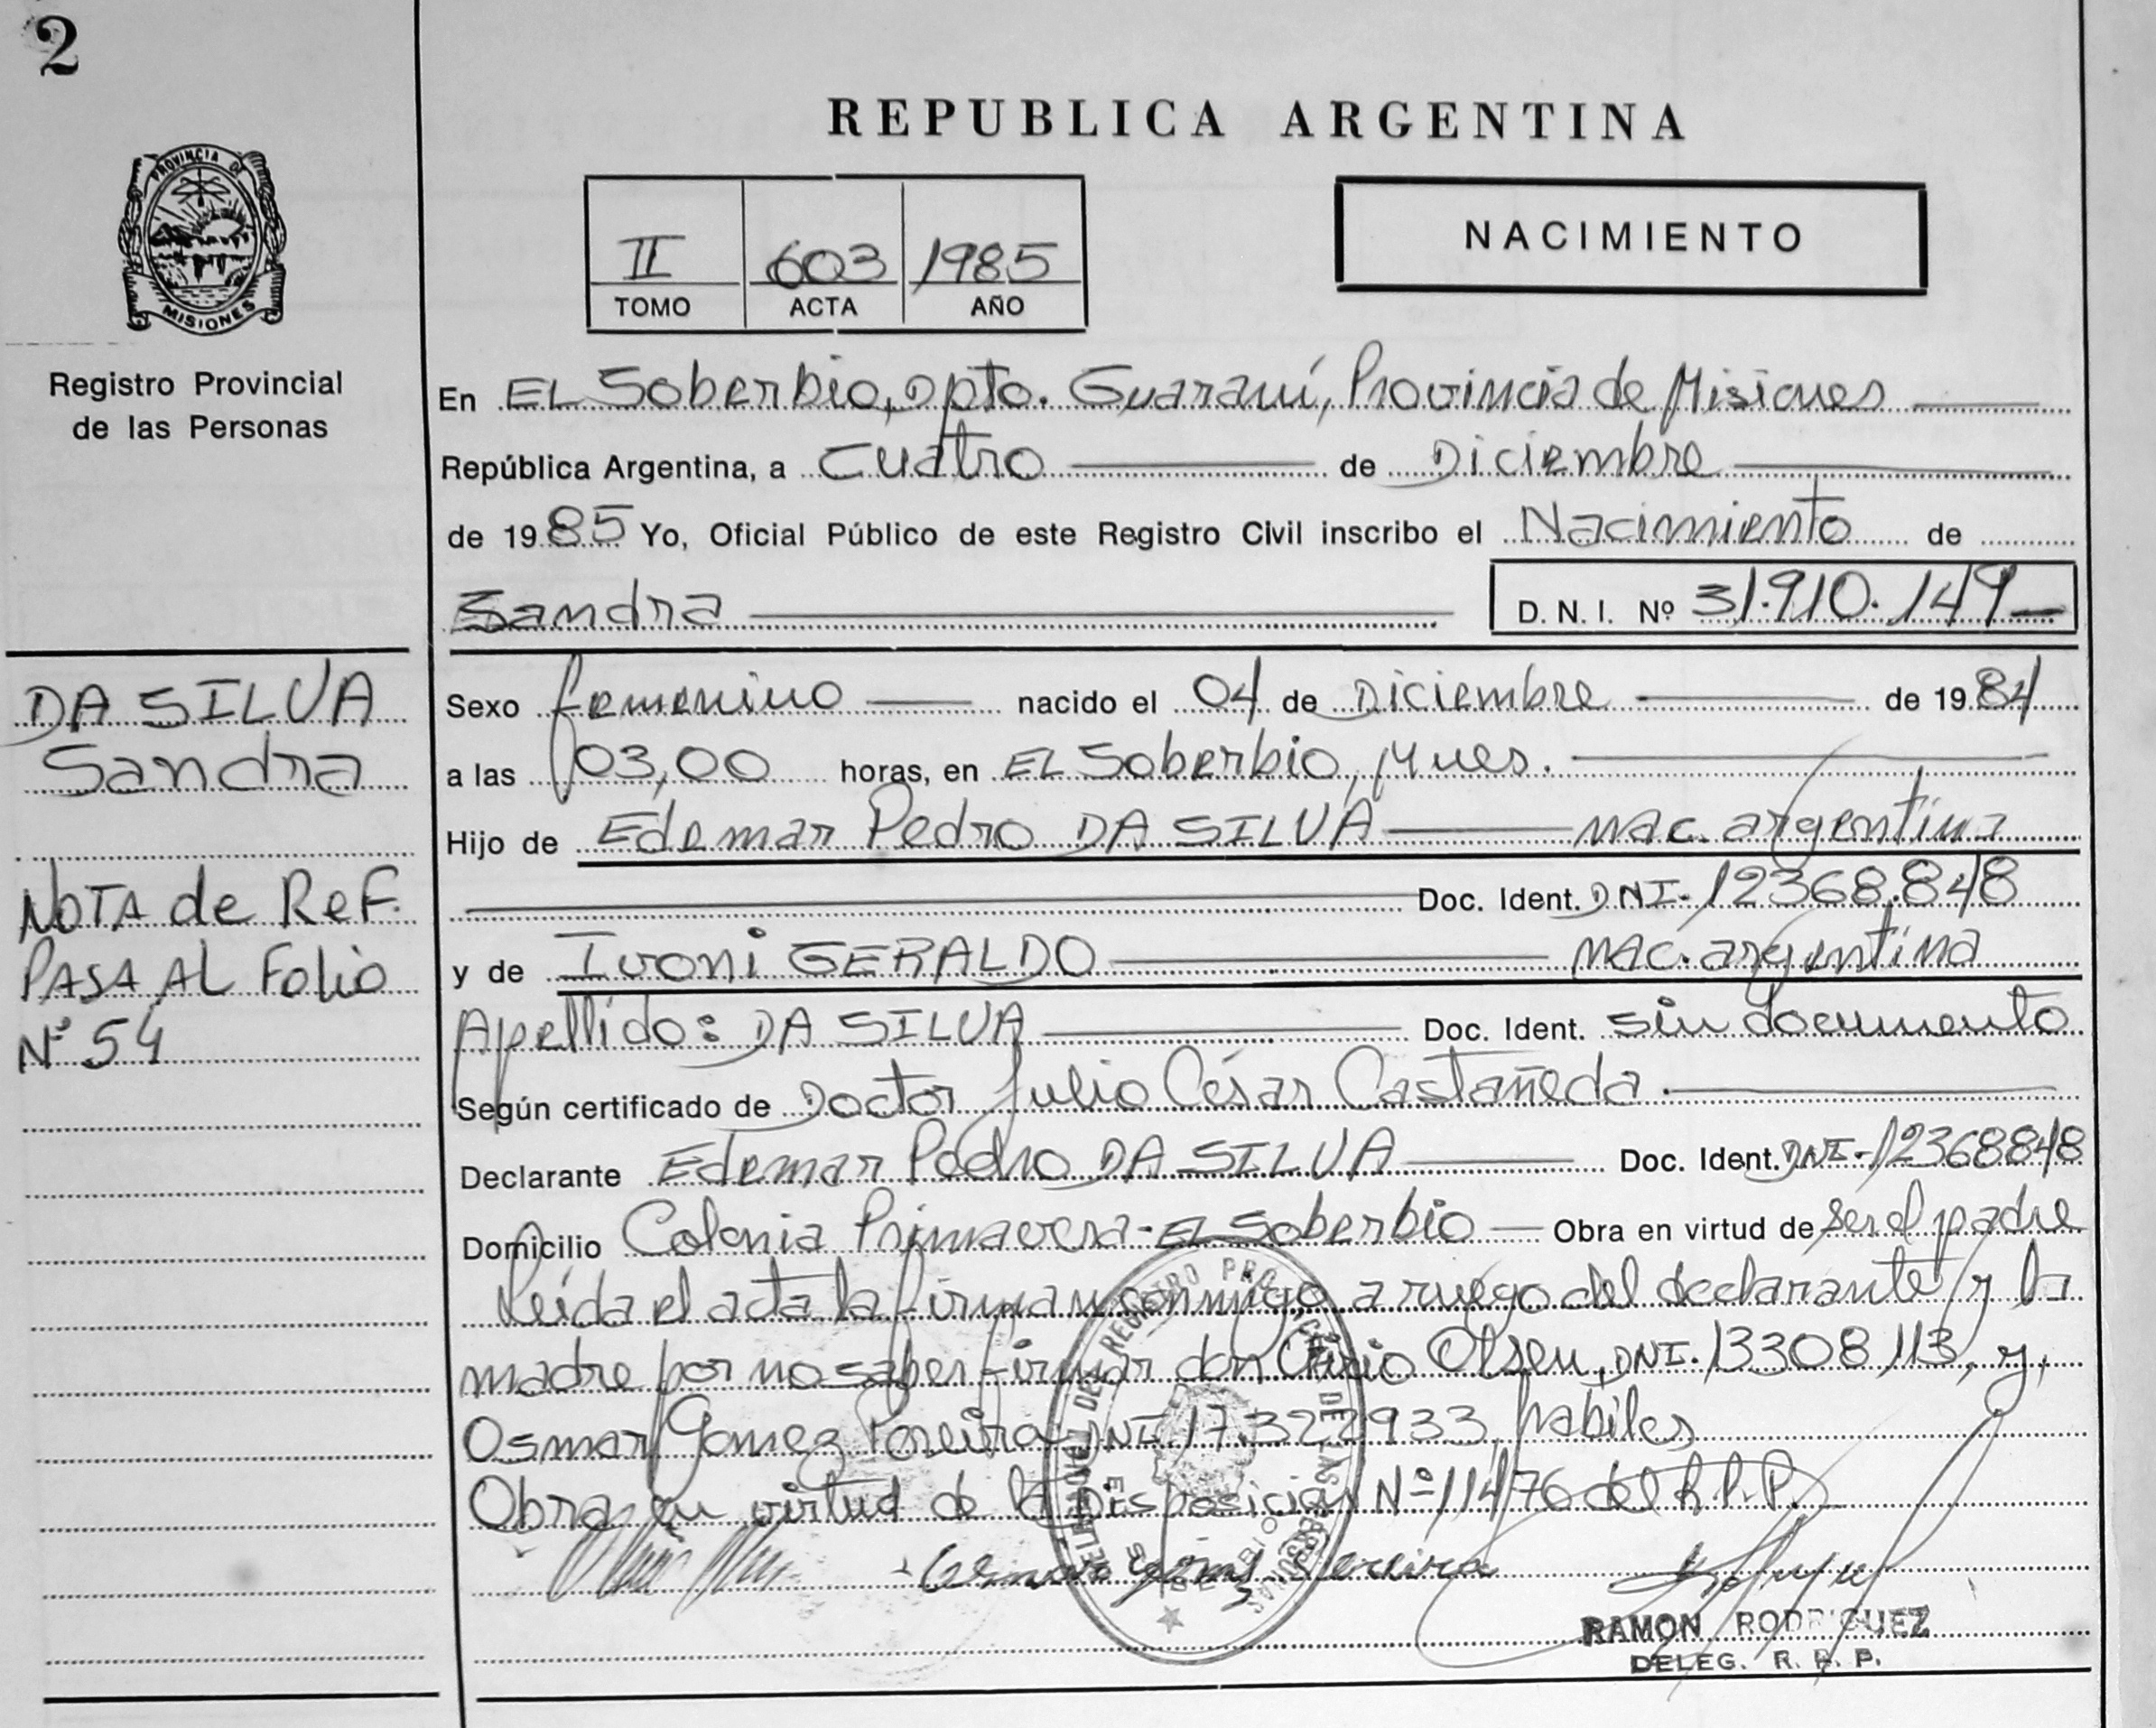 2
PROVINCIA DE
MISIONES
Registro Provincial
de las Personas
DA SILVA
Sandra
NOTA de ReF.
PASA AL Folio
Nº 54
REPUBLICA ARGENTINA
II 603 1985
TOMO ACTA AÑO
NACIMIENTO
En EL Soberbio, Dpto. Guaraní, Provincia de Misiones
República Argentina, a cuatro de Diciembre
de 1985 Yo, Oficial Público de este Registro Civil inscribo el Nacimiento de
Sandra D. N. I. Nº 31.910.149
Sexo femenino nacido el 04 de Diciembre de 1984
a las 03,00 horas, en EL Soberbio, Mnes.
Hijo de Edemar Pedro DA SILVA nac. argentina
Doc. Ident. DNI-12368.848
y de Ivoni GERALDO nac. argentina
Apellido: DA SILVA Doc. Ident. sin documento
Según certificado de Doctor Julio César Castañeda.
Declarante Edemar Pedro DA SILVA Doc. Ident. DNI-12368848
Domicilio Colonia Primavera-EL Soberbio Obra en virtud de ser el padre
Leída el acta la firman conmigo a ruego del declarante y la
madre por no saber firmar don Olsen, DNI. 13308113, y,
Osmar Gomez Pereira DNI 17.322933, habiles
Obra en virtud de la Disposición Nº 114/76 del R.P.P.
Pereira
RAMON RODRIGUEZ
DELEG. R. P. P.